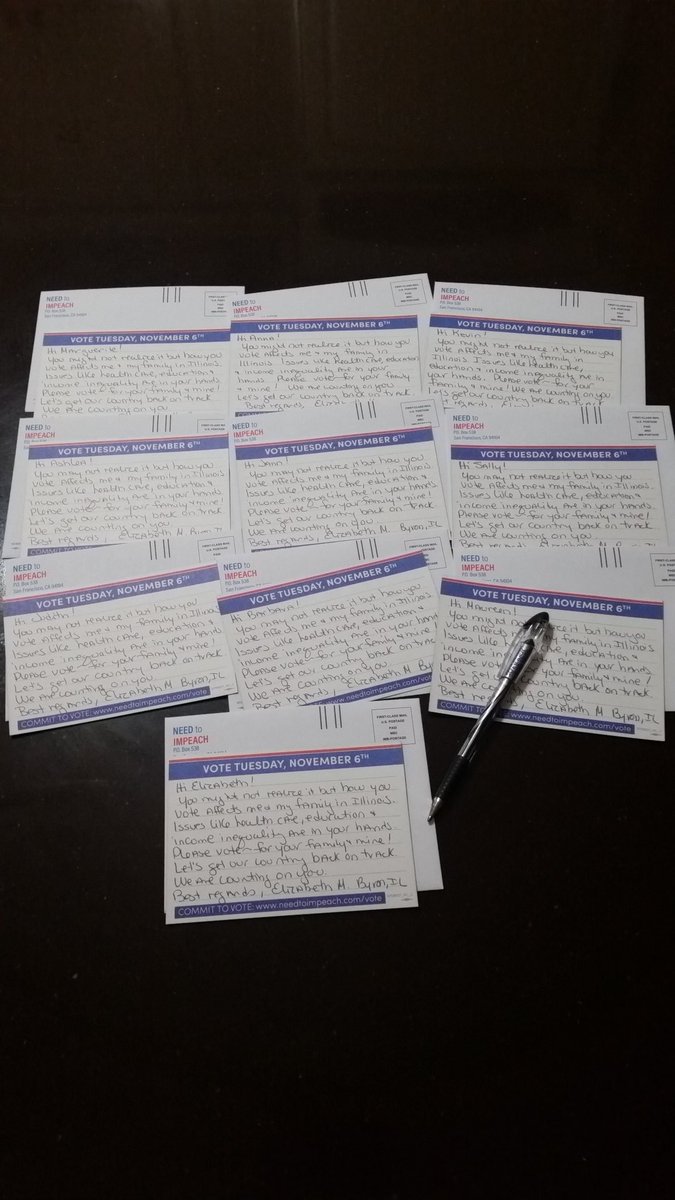 NEED to
IMPEACH
P.O. Box 538
San Francisco, CA 94104
FIRST-CLASS MAIL
U.S. POSTAGE
PAID
VOTE TUESDAY, NOVEMBER 6TH
Hi Marguerite!
You might not realize it but how you
vote Affects me & my family in Illinois.
Issues like health care, education &
income inequality Are in your hands
Please vote - for your family & mine!
Let's get our country back on track
We Are counting on you.
NEED to
IMPEACH
P.O. Box 538
FIRST-CLASS MAIL
U.S. POSTAGE
PAID
VOTE TUESDAY, NOVEMBER 6TH
Hi Anna!
You might not realize it but how you
vote Affects me & my family in
Illinois. Issues like health care, education
& income inequality Are in your
hands. Please vote - for your family
& mine! We Are counting on you
Let's get our country back on track
Best regards,
NEED to
IMPEACH
P.O. Box 538
San Francisco, CA 94104
FIRST-CLASS MAIL
U.S. POSTAGE
PAID
VOTE TUESDAY, NOVEMBER 6TH
Hi Kevin!
You might not realize it but how you
vote Affects me & my family in
Illinois. Issues like health care,
education & income inequality Are in
your hands. Please vote - for your
family & mine! We Are counting on you
Let's get our country back on track
Best regards,
NEED to
IMPEACH
VOTE TUESDAY, NOVEMBER 6TH
Hi Ashley!
You may not realize it but how you
vote Affects me & my family in Illinois.
Issues like health care, education &
income inequality Are in your hands
Please vote - for your family & mine!
Let's get our country back on track
We Are counting on you.
Best regards, Elizabeth M. Byron, IL
NEED to
IMPEACH
P.O. Box 538
San Francisco, CA 94104
VOTE TUESDAY, NOVEMBER 6TH
Hi Jann!
You may not realize it but how you
vote Affects me & my family in Illinois.
Issues like health care, education &
income inequality Are in your hands
Please vote - for your family & mine!
Let's get our country back on track
We Are counting on you
Best regards, Elizabeth M. Byron, IL
NEED to
IMPEACH
P.O. Box 538
San Francisco, CA 94104
VOTE TUESDAY, NOVEMBER 6TH
Hi Sally!
You may not realize it but how you
vote Affects me & my family in Illinois.
Issues like health care, education &
income inequality Are in your hands
Please vote - for your family & mine!
Let's get our country back on track
We Are counting on you.
Best regards, Elizabeth M. Byron, IL
NEED to
IMPEACH
P.O. Box 538
San Francisco, CA 94104
VOTE TUESDAY, NOVEMBER 6TH
Hi Judith!
You may not realize it but how you
vote Affects me & my family in Illinois
Issues like health care, education &
income inequality Are in your hands
Please vote - for your family & mine!
Let's get our country back on track
We Are counting on you.
Best regards, Elizabeth M. Byron, IL
COMMIT TO VOTE: www.needtoimpeach.com/vote
NEED to
IMPEACH
P.O. Box 538
San Francisco, CA 94104
VOTE TUESDAY, NOVEMBER 6TH
Hi Barbara!
You may not realize it but how you
vote Affects me & my family in Illinois.
Issues like health care, education &
income inequality Are in your hands
Please vote - for your family & mine!
Let's get our country back on track
We Are counting on you
Best regards, Elizabeth M. Byron, IL
COMMIT TO VOTE: www.needtoimpeach.com/vote
NEED to
IMPEACH
P.O. Box 538
VOTE TUESDAY, NOVEMBER 6TH
Hi Maureen!
You might not realize it but how you
vote Affects my family in Illinois
Issues like health care, education &
income in Are in your hands.
Please vote your family & mine!
Let's get country back on track
We Are counting on you
Best regards, Elizabeth M. Byron, IL
COMMIT TO VOTE: www.needtoimpeach.com/vote
NEED to
IMPEACH
P.O. Box 538
FIRST-CLASS MAIL
U.S. POSTAGE
PAID
MBC
MIB-PORTAGE
VOTE TUESDAY, NOVEMBER 6TH
Hi Elizabeth!
You might not realize it but how you
vote Affects me & my family in Illinois.
Issues like health care, education &
income inequality Are in your hands.
Please vote - for your family & mine!
Let's get our country back on track.
We Are counting on you.
Best regards, Elizabeth M. Byron, IL
COMMIT TO VOTE: www.needtoimpeach.com/vote